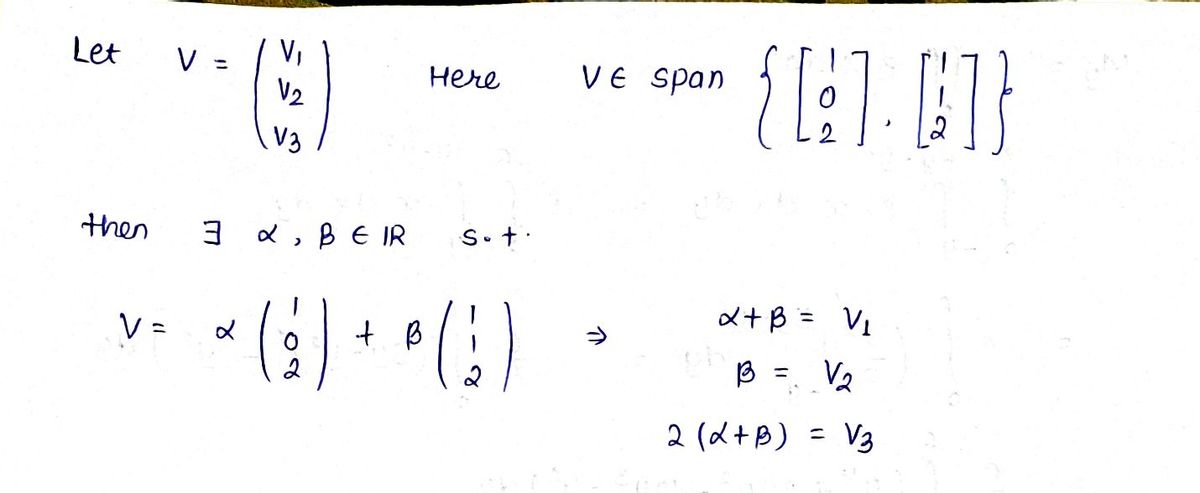 Let V = (V₁ V₂ V₃) Here V ∈ span {[1 0 2], [1 1 2]}
then ∃ α, β ∈ ℝ s.t.
V = α (1 0 2) + β (1 1 2) ⇒ α+β = V₁
β = V₂
2(α+β) = V₃